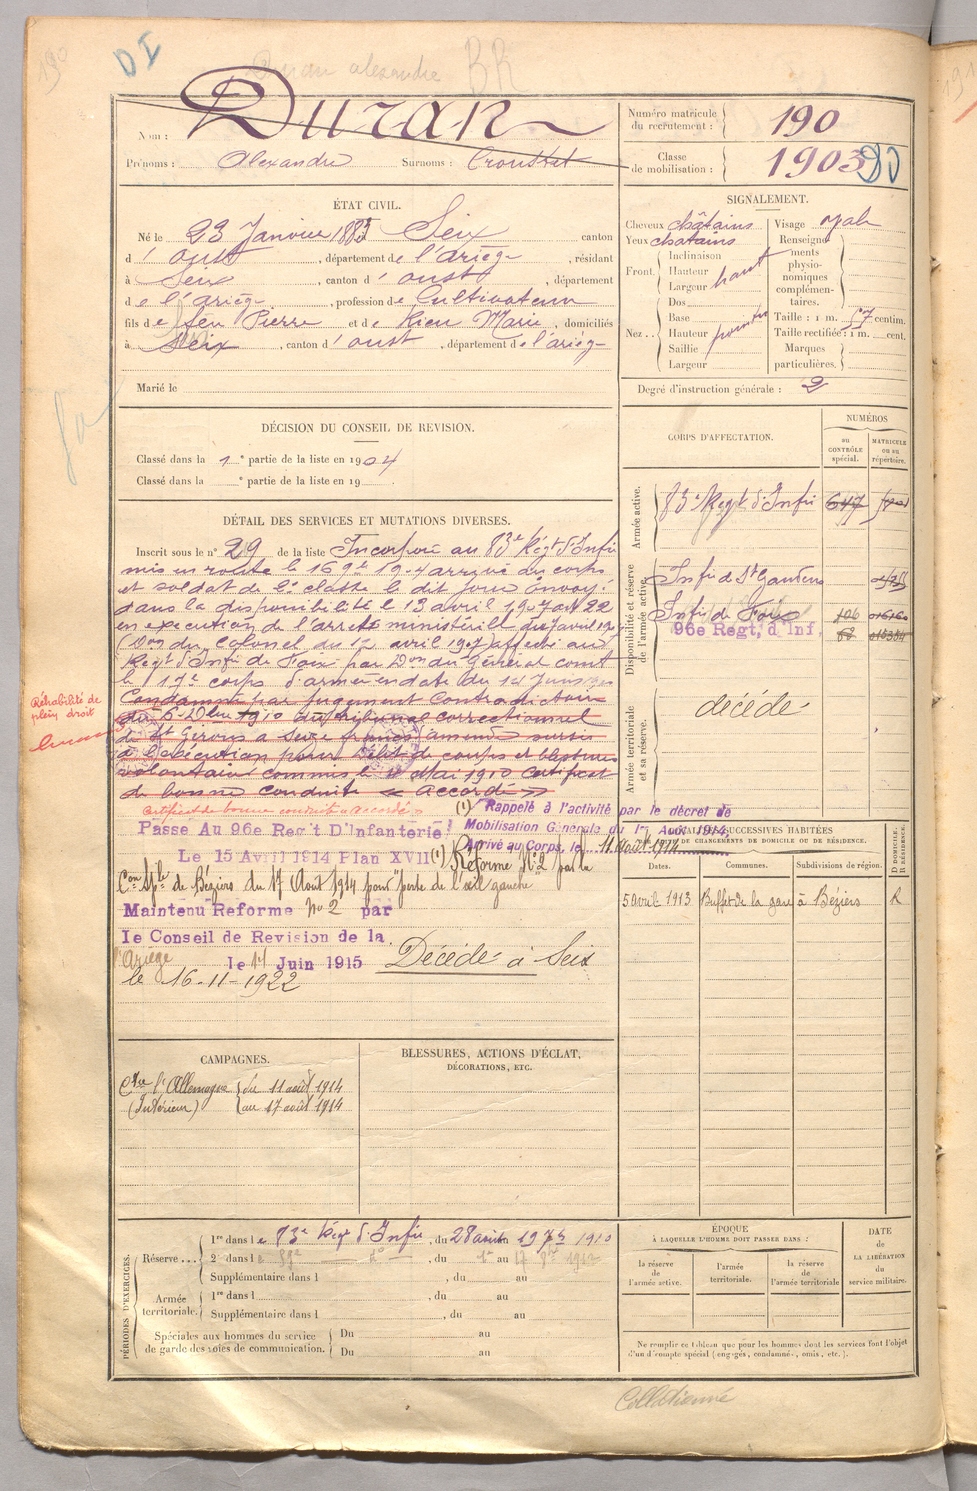 190
DI
Duran alexandre
BR
Nom : Duran
Prénoms : Alexandre Surnoms : Croustet
Numéro matricule du recrutement : 190
Classe de mobilisation : 1903
ÉTAT CIVIL.
Né le 23 Janvier 1883 Seix canton
d'oust, département de l'ariège, résidant
à Seix, canton d'oust, département
de l'ariège, profession de Cultivateur
fils de feu Pierre et de Rieu Marie, domiciliés
à Seix, canton d'oust, département de l'ariège
Marié le
SIGNALEMENT.
Cheveux châtains Visage oval
Yeux chatains
Renseignements physionomiques complémentaires.
Front. Inclinaison
Hauteur haut
Largeur
Nez .. Dos
Base
Hauteur
Saillie
Largeur
Taille : 1 m. 57 centim.
Taille rectifiée : 1 m. cent.
Marques particulières.
Degré d'instruction générale : 2
DÉCISION DU CONSEIL DE REVISION.
Classé dans la 1e partie de la liste en 1904
Classé dans la e partie de la liste en 19
CORPS D'AFFECTATION.
NUMÉROS
AU CONTRÔLE spécial.
MATRICULE ou au répertoire.
Armée active.
83e Regt d'Infie 647
Disponibilité et réserve de l'armée active.
Infie de St Gaudens
Infie de Foix 106
96e Regt, d'Inf.
Armée territoriale et sa réserve.
décédé
DÉTAIL DES SERVICES ET MUTATIONS DIVERSES.
Inscrit sous le n° 29 de la liste Incorporé au 83e Régt d'Infie
mis en route le 16 9bre 1904 arrivé au corps
et soldat de 2e classe le dit jour Envoyé
dans la disponibilité le 13 avril 1907 art 22
en execution de l'arreté ministériel du avril 1907
(Don du Colonel du avril 1907) affecté au
Regt d'Infie de Foix par Don du Général comt
le 17e corps d'armée en date du 1er Juin
Condamné par jugement contradictoire
du 6 Xbre 1910 du tribunal correctionnel
de St Girons a Seize francs amende sursis
à l'exécution pour Délit de coups et blessures
volontaires commis le Mai 1910 Certificat
de bonne conduite « Accordé »
Réhabilité de
plein droit
Certificat de bonne conduite « Accordé »
(1) Rappelé à l'activité par le décret de
Mobilisation Générale du 1er Août 1914,
Arrivé au Corps, le 11 août 1914
Passé Au 96e Reg't D'Infanterie
Le 15 Avril 1914 Plan XVII
(1) Réformé N°2 par la
Con Sple de Béziers du 17 Août 1914 pour "perte de l'œil gauche
Maintenu Reforme No 2 par
le Conseil de Revision de la
Ariège le 17 Juin 1915
Décédé à Seix
le 16-11-1922
LOCALITÉS SUCCESSIVES HABITÉES
DE CHANGEMENTS DE DOMICILE OU DE RÉSIDENCE.
Dates. Communes. Subdivisions de région. D DOMICILE. R RÉSIDENCE.
5 avril 1913 Buffet de la gare à Béziers R
CAMPAGNES.
Ctre l'Allemagne du 11 août 1914
(Intérieur) au 17 août 1914
BLESSURES, ACTIONS D'ÉCLAT,
DÉCORATIONS, ETC.
PÉRIODES D'EXERCICES.
Réserve ... 1re dans le 83e Regt d'Infie, du 28 au 1910
2e dans le , du 1er au 17 1912
Supplémentaire dans l , du au
Armée territoriale. 1re dans l , du au
Supplémentaire dans l , du au
Spéciales aux hommes du service Du au
de garde des voies de communication. Du au
ÉPOQUE
À LAQUELLE L'HOMME DOIT PASSER DANS :
la réserve de l'armée active.
l'armée territoriale.
la réserve de l'armée territoriale
DATE de LA LIBÉRATION du service militaire.
Ne remplir ce tableau que pour les hommes dont les services font l'objet
d'un décompte spécial (engagés, condamnés, omis, etc.).